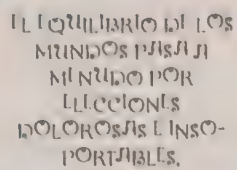 EL EQUILIBRIO DE LOS
MUNDOS PASA A
MENUDO POR
ELECCIONES
DOLOROSAS E INSO-
PORTABLES.